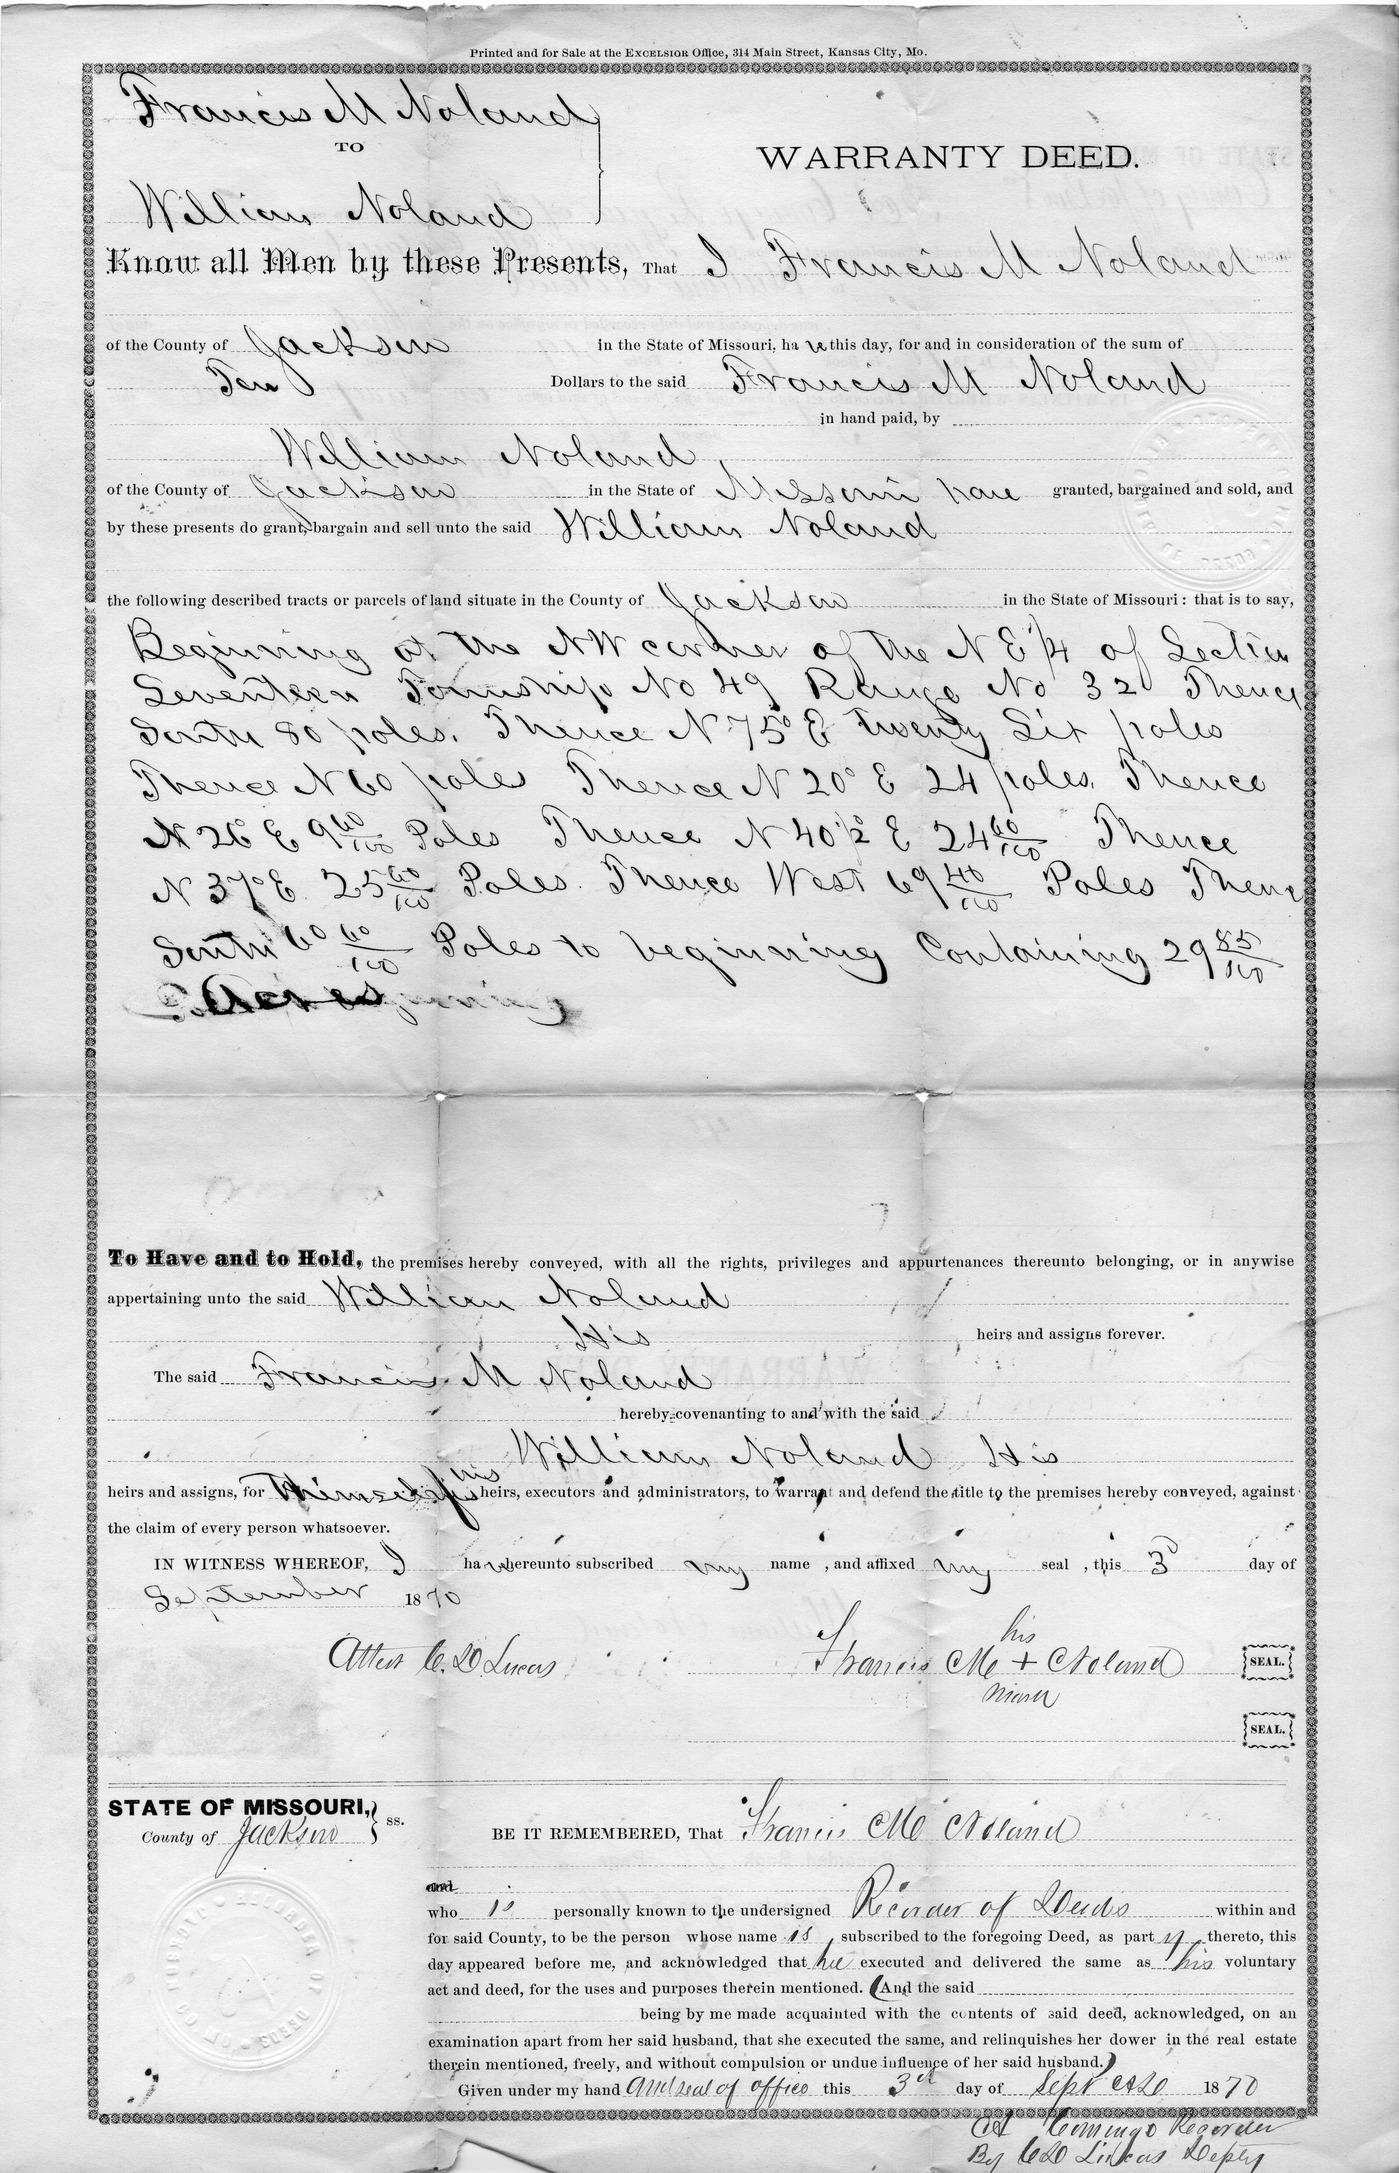 Printed and for Sale at the EXCELSIOR Office, 314 Main Street, Kansas City, Mo.
Francis M Noland
TO
WARRANTY DEED.
William Noland
Know all Men by these Presents, That I Francis M Noland
of the County of Jackson in the State of Missouri, ha ve this day, for and in consideration of the sum of
Ten Dollars to the said Francis M Noland
in hand paid, by
William Noland,
of the County of Jackson in the State of Missouri have granted, bargained and sold, and
by these presents do grant, bargain and sell unto the said William Noland
the following described tracts or parcels of land situate in the County of Jackson in the State of Missouri: that is to say,
Beginning at the NW corner of the N E 1/4 of Section
Seventeen Township No 49 Range No 32 Thence
South 80 poles. Thence N 75° E twenty Six poles
Thence N 60 poles Thence N 20° E 24 poles. Thence
N 26° E 9 60/100 Poles Thence N 40 1/2 E 24 60/100 Thence
N 37° E 25 60/100 Poles. Thence West 69 40/100 Poles Thence
South 60 60/100 Poles to beginning Containing 29 85/100
Acres
To Have and to Hold, the premises hereby conveyed, with all the rights, privileges and appurtenances thereunto belonging, or in anywise
appertaining unto the said William Noland
His heirs and assigns forever.
The said Francis M Noland
hereby covenanting to and with the said
William Noland His
heirs and assigns, for himself his heirs, executors and administrators, to warrant and defend the title to the premises hereby conveyed, against
the claim of every person whatsoever.
IN WITNESS WHEREOF, I ha ve hereunto subscribed my name , and affixed my seal , this 3d day of
September 1870
his
Attest C. D Lucas Francis M + Noland SEAL.
mark
SEAL.
STATE OF MISSOURI, ss.
County of Jackson
BE IT REMEMBERED, That Francis M Noland
and
who is personally known to the undersigned Recorder of Deeds within and
for said County, to be the person whose name is subscribed to the foregoing Deed, as part y thereto, this
day appeared before me, and acknowledged that he executed and delivered the same as his voluntary
act and deed, for the uses and purposes therein mentioned. (And the said
being by me made acquainted with the contents of said deed, acknowledged, on an
examination apart from her said husband, that she executed the same, and relinquishes her dower in the real estate
therein mentioned, freely, and without compulsion or undue influence of her said husband.)
Given under my hand and seal of office this 3rd day of Sept AD 1870
A Comingo Recorder
By C D Lucas Depty